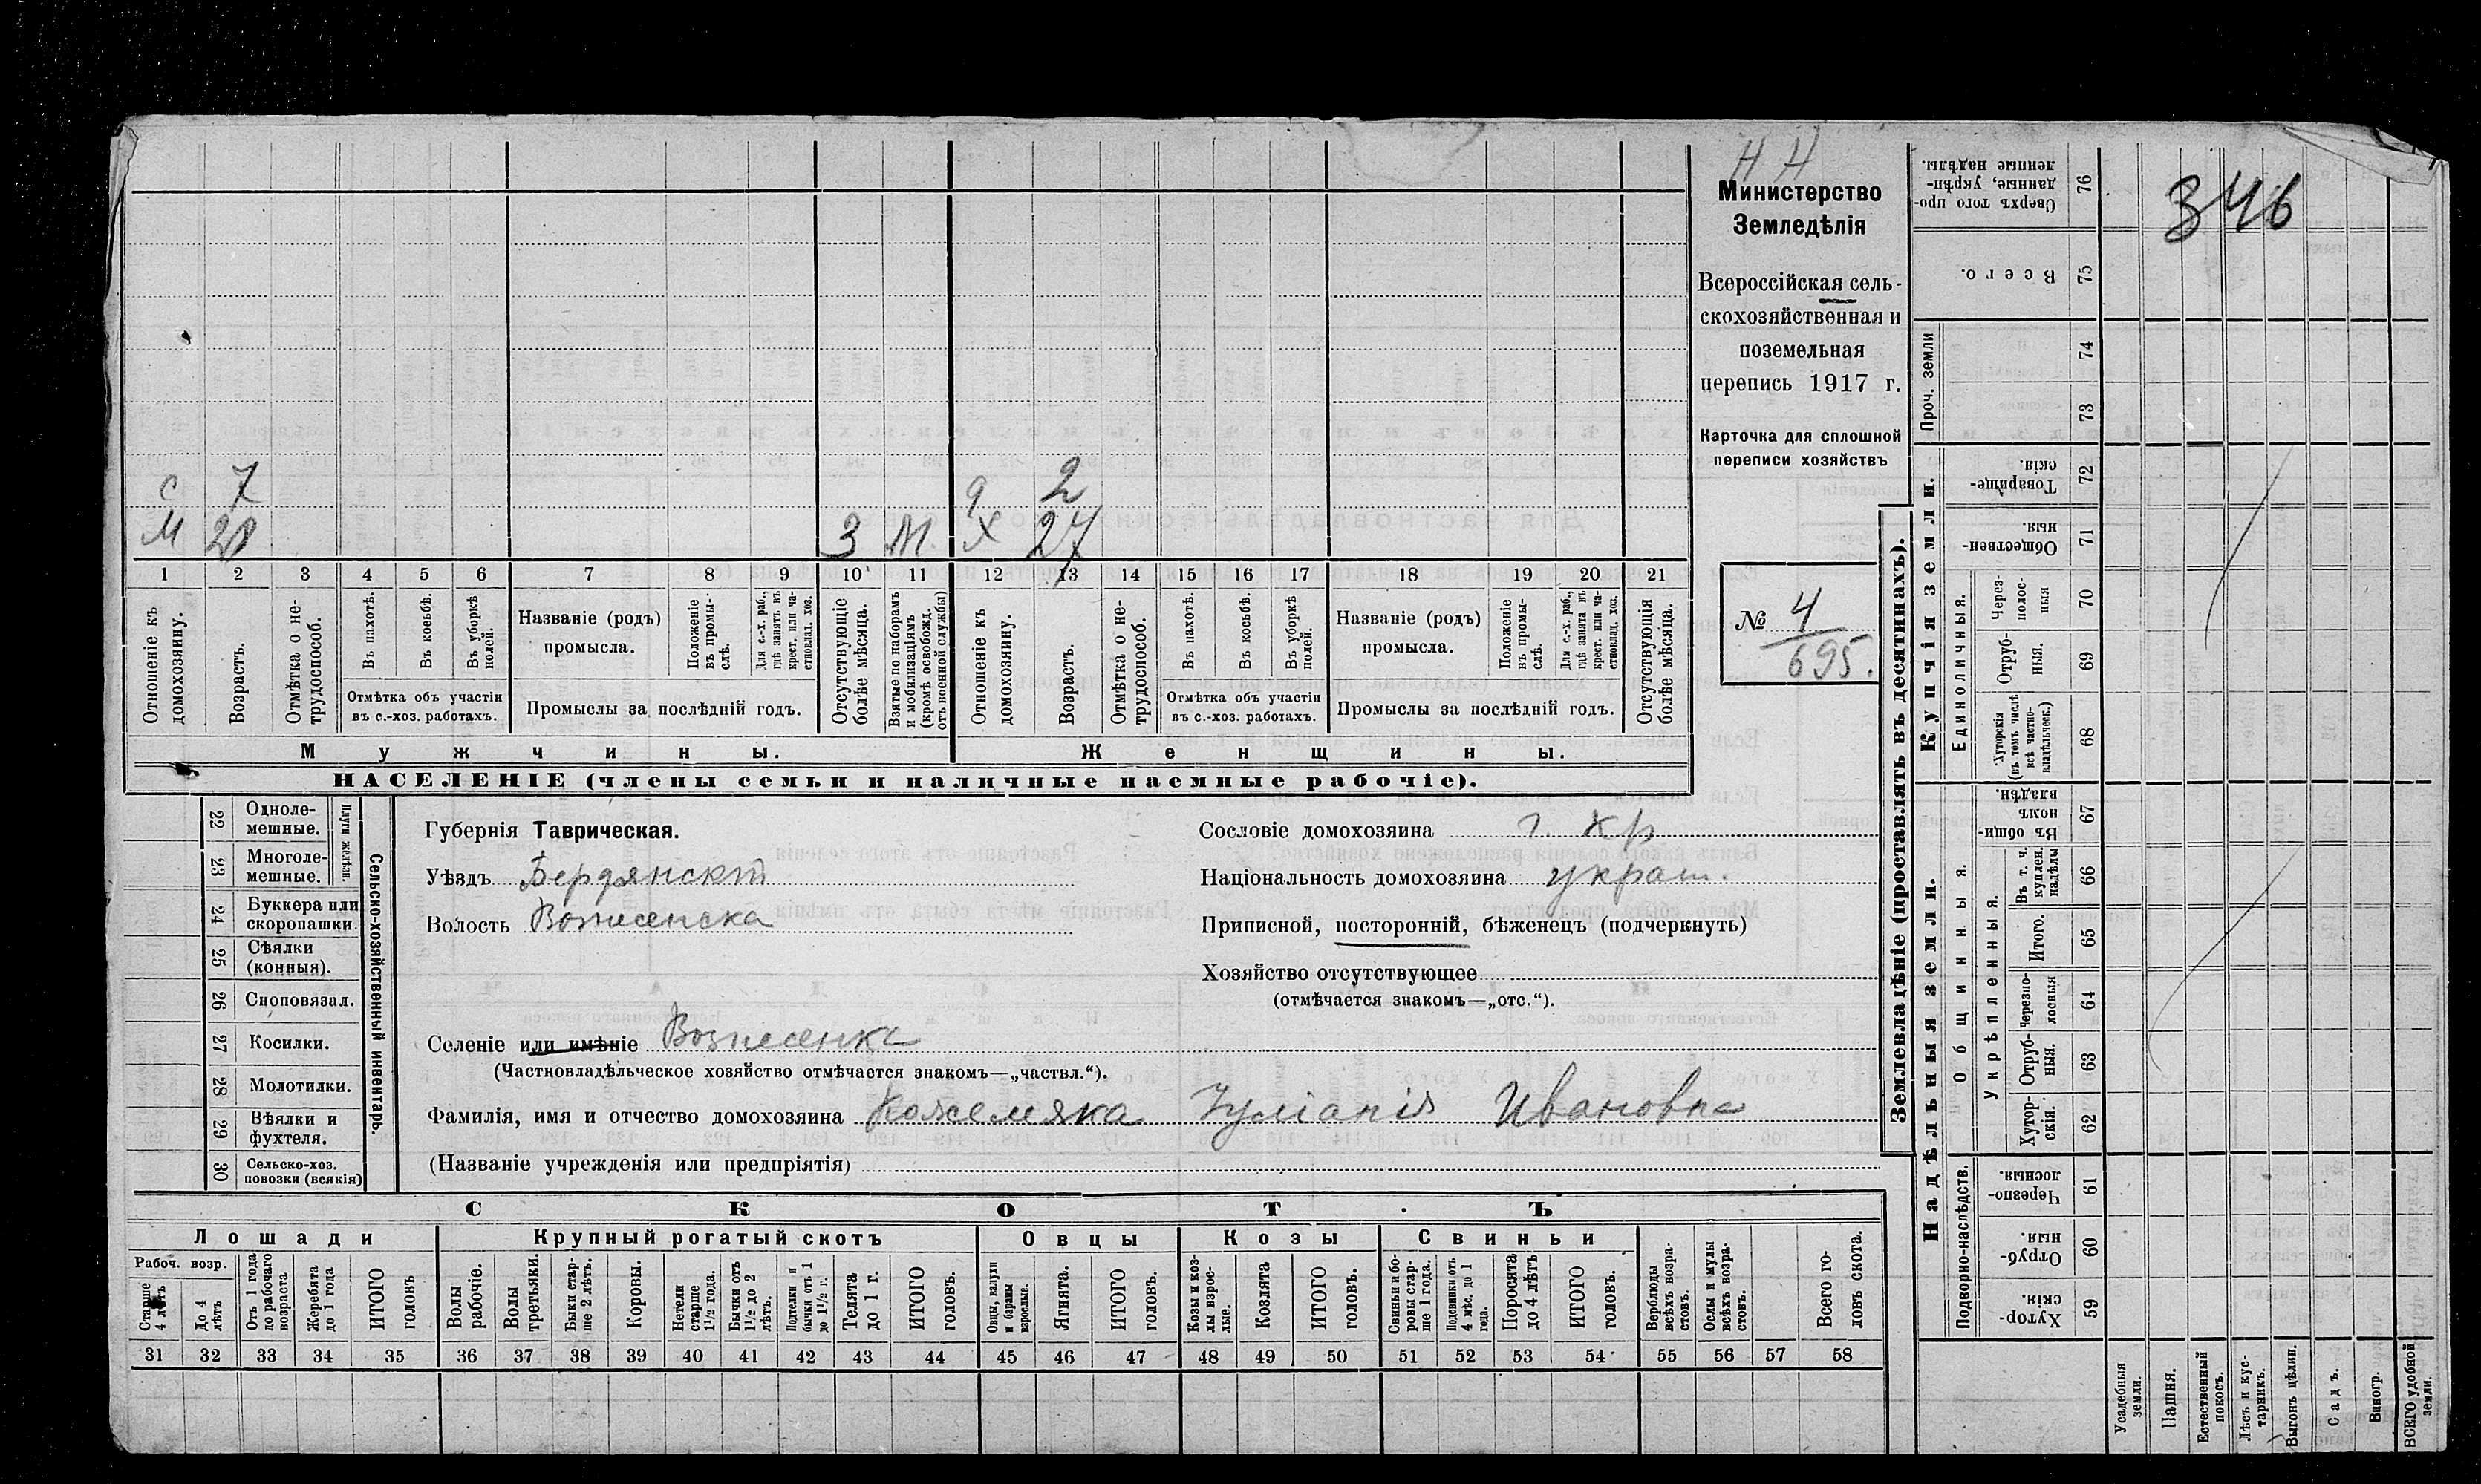 Н Н
Министерство
Земледѣлія
Всероссійская сель-
скохозяйственная и
поземельная
перепись 1917 г.
Карточка для сплошной
переписи хозяйствъ
№ 4
695.
346
с 7 д 2
М 28 3 М. Х 27
1 2 3 4 5 6 7 8 9 10 11 12 13 14 15 16 17 18 19 20 21
Отношеніе къ домохозяину.
Возрастъ.
Отмѣтка о не-трудоспособ.
Въ пахотѣ.
Въ косьбѣ.
Въ уборкѣ полей.
Отмѣтка объ участіи
въ с.-хоз. работахъ.
Названіе (родъ)
промысла.
Положеніе въ промы-слѣ.
Для с.-х. раб., гдѣ занятъ въ крест. или ча-стновлад. хоз.
Промыслы за послѣдній годъ.
Отсутствующіе болѣе мѣсяца.
Взятые по наборамъ и мобилизаціямъ (кромѣ освобожд. отъ военной службы)
Отношеніе къ домохозяину.
Возрастъ.
Отмѣтка о не-трудоспособ.
Въ пахотѣ.
Въ косьбѣ.
Въ уборкѣ полей.
Отмѣтка объ участіи
въ с.-хоз. работахъ.
Названіе (родъ)
промысла.
Положеніе въ промы-слѣ.
Для с.-х. раб., гдѣ занята въ крест. или ча-стновлад. хоз.
Промыслы за послѣдній годъ.
Отсутствующія болѣе мѣсяца.
Мужчины.
Женщины.
НАСЕЛЕНІЕ (члены семьи и наличные наемные рабочіе).
22 Одноле-мешные.
23 Многоле-мешные.
Плуги желѣзн.
24 Буккера или скоропашки.
25 Сѣялки (конныя).
26 Сноповязал.
27 Косилки.
28 Молотилки.
29 Вѣялки и фухтеля.
30 Сельско-хоз. повозки (всякія)
Сельско-хозяйственный инвентарь.
Губернія Таврическая.
Уѣздъ Бердянскій
Волость Вознесенска
Сословіе домохозяина г. кр
Національность домохозяина украин.
Приписной, посторонній, бѣженецъ (подчеркнуть)
Хозяйство отсутствующее
(отмѣчается знакомъ—„отс.“).
Селеніе или имѣніе Вознесенка
(Частновладѣльческое хозяйство отмѣчается знакомъ—„частвл.“).
Фамилія, имя и отчество домохозяина Кожемяка Іуліанія Ивановна
(Названіе учрежденія или предпріятія)
СКОТЪ
Лошади
Крупный рогатый скотъ
Овцы
Козы
Свиньи
Рабоч. возр.
Старше 4 лѣтъ
До 4 лѣтъ
Отъ 1 года до рабочаго возраста
Жеребята до 1 года
ИТОГО головъ
Волы рабочіе.
Волы третьяки.
Быки стар-ше 2 лѣтъ.
Коровы.
Нетели старше 1½ года.
Бычки отъ 1½ до 2 лѣтъ.
Подтелки и бычки отъ 1 до 1½ г.
Телята до 1 г.
ИТОГО головъ.
Овцы, валухи и бараны взрослые.
Ягнята.
ИТОГО головъ.
Козы и коз-лы взрос-лые.
Козлята
ИТОГО головъ.
Свиньи и бо-ровы стар-ше 1 года.
Подсвинки отъ 4 мѣс. до 1 года.
Поросята до 4 лѣтъ
ИТОГО головъ.
Верблюды всѣхъ возра-стовъ.
Ослы и мулы всѣхъ возра-стовъ.
Всего го-ловъ скота.
31 32 33 34 35 36 37 38 39 40 41 42 43 44 45 46 47 48 49 50 51 52 53 54 55 56 57 58
Землевладѣніе (проставлять въ десятинахъ).
Надѣльныя земли.
Купчія земли.
Проч. земли
Подворно-наслѣдств.
Общинныя.
Укрѣпленныя.
Единоличныя.
Сверхъ того про-данные, укрѣп-ленные надѣлы. 76
Всего. 75
74
73
Товарище-скія. 72
Обществен-ныя 71
Через-полос-ныя 70
Отруб-ныя. 69
Хуторскія (въ томъ числѣ всѣ частно-владѣльческ.) 68
Въ общи-номъ владѣн. 67
Въ т. ч. куплен. надѣлы 66
Итого. 65
Черезпо-лосныя 64
Отруб-ныя. 63
Хутор-скія. 62
Черезпо-лосныя. 61
Отруб-ныя. 60
Хутор-скія. 59
Усадебныя земли.
Пашня.
Естественный покосъ.
Лѣсъ и кус-тарникъ.
Выгонъ цѣлин.
Садъ.
Виногр.
ВСЕГО удобной земли.